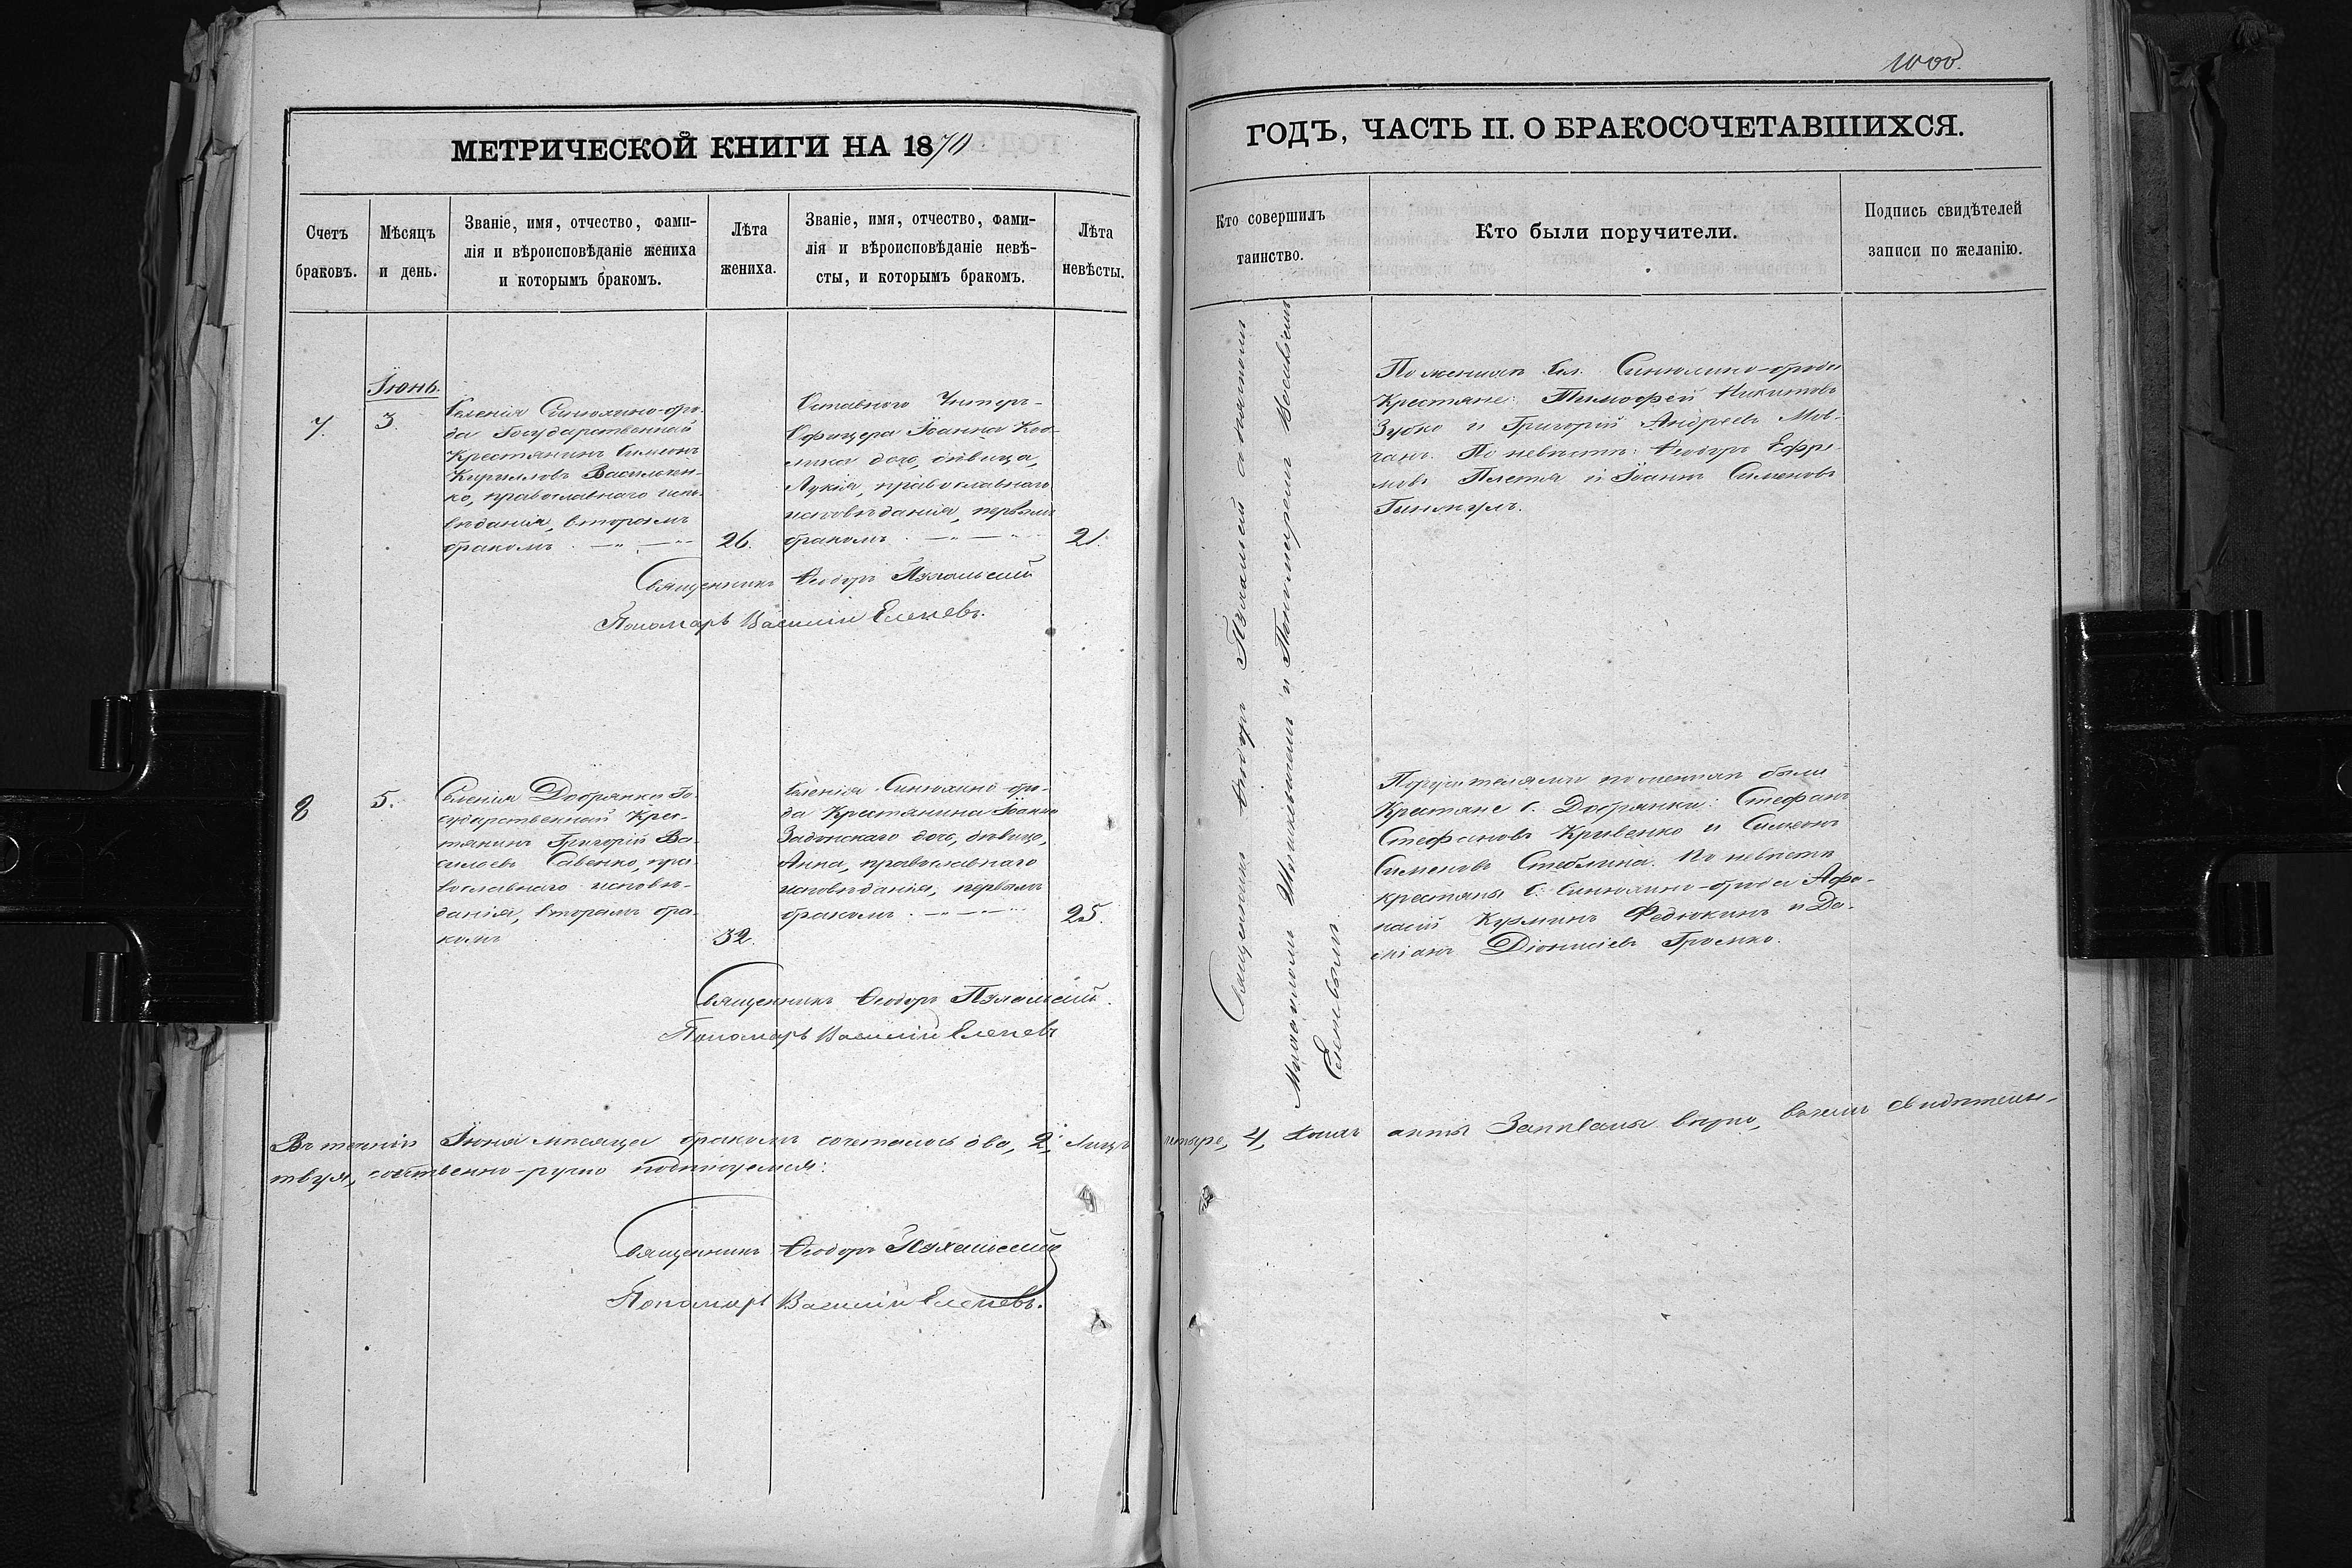 1000.
МЕТРИЧЕСКОЙ КНИГИ НА 1870
ГОДЪ, ЧАСТЬ II. О БРАКОСОЧЕТАВШИХСЯ.
Счетъ
браковъ.
Мѣсяцъ
и день.
Званіе, имя, отчество, фами-
лія и вѣроисповѣданіе жениха
и которымъ бракомъ.
Лѣта
жениха.
Званіе, имя, отчество, фами-
лія и вѣроисповѣданіе невѣ-
сты, и которымъ бракомъ.
Лѣта
невѣсты.
Кто совершилъ
таинство.
Кто были поручители.
Подпись свидѣтелей
записи по желанію.
Іюнь.
7.
3.
Селенія Синюхино-бро-
да Государственный
Крестьянинъ Симеонъ
Кирилловъ Васильчен-
ко, православнаго испо-
вѣданія, вторымъ
бракомъ
26.
Отставного Унтеръ-
Офицера Іоанна
дочь, дѣвица,
Лукія, православнаго
исповѣданія, первымъ
бракомъ
21.
Священникъ Ѳеодоръ
Пономарь Василій Еленевъ.
По женихѣ Сел. Синюхино-брода
Крестьяне: Тимофей Никитовъ
Зубко и Григорій Андреевъ Мов-
чанъ. По невѣстѣ: Ѳеодоръ Ефре-
мовъ Плетня и Іоаннъ Симеоновъ
8
5.
Селенія Добрянки Го-
сударственный Крес-
тьянинъ Григорій Ва-
сильевъ Савенко, пра-
вославнаго исповѣ-
данія, вторымъ бра-
комъ
32.
Селенія Синюхино-бро-
да Крестьянина Іоанна
Задонскаго дочь, дѣвица,
Анна, православнаго
исповѣданія, первымъ
бракомъ
25.
Священникъ Ѳеодоръ
Пономарь Василій Еленевъ
Поручителями по женихѣ были
Крестьяне С. Добрянки: Стефанъ
Стефановъ Кривенко и Симеонъ
Симеоновъ Стеблина. По невѣстѣ
крестьяны С. Синюхино-брода Афа-
насій Кузминъ Федюкинъ и Да-
міанъ Діонисіевъ Громко.
Священникъ Ѳеодоръ
и Пономаремъ Василіемъ
Еленевымъ.
Въ теченіи Іюня мѣсяца бракомъ сочеталось два, 2, лицъ четыре, 4, акты записаны вѣрно, въ чемъ свидѣтельс-
твуя, собственно-ручно подписуемся:
Священникъ Ѳеодоръ
Пономарь Василій Еленевъ.